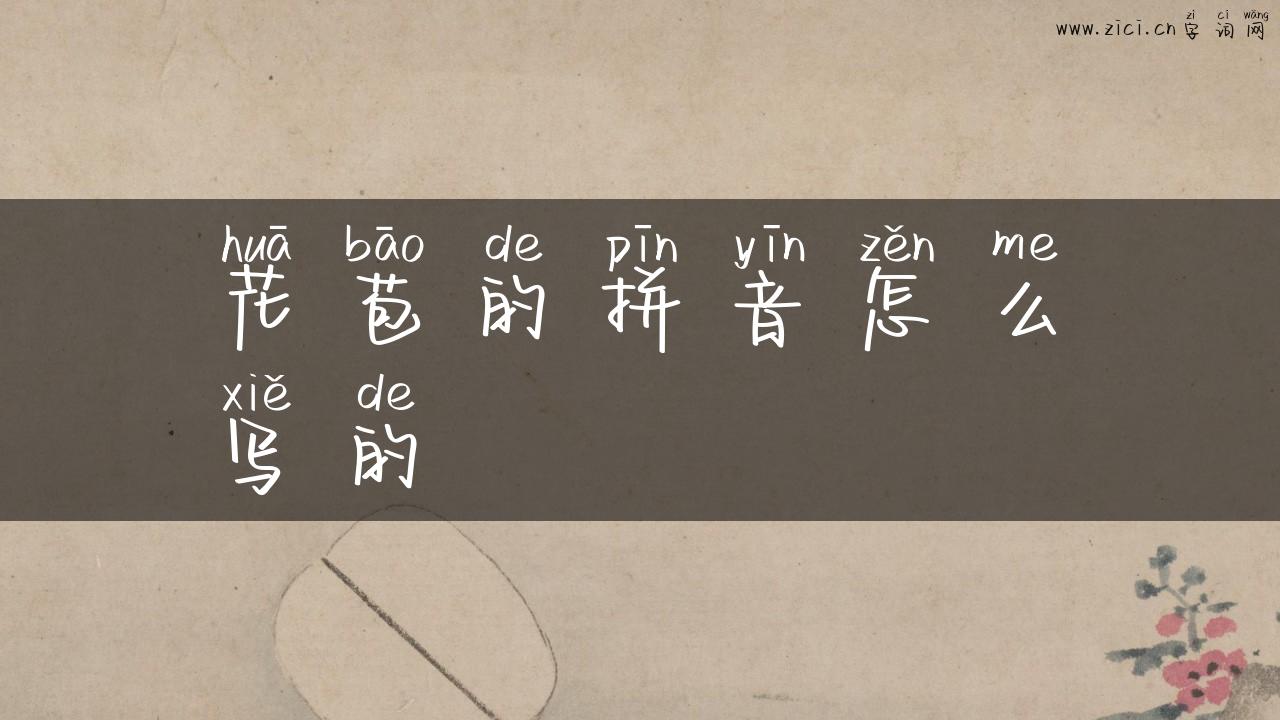 zì cí wǎng
www.zici.cn 字词网
huā bāo de pīn yīn zěn me
花苞的拼音怎么
xiě de
写的